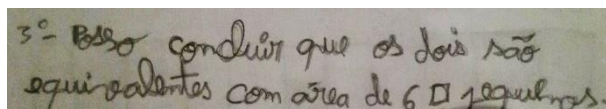 3º- Posso concluir que os dois são
equivalentes com área de 6 □ pequenos